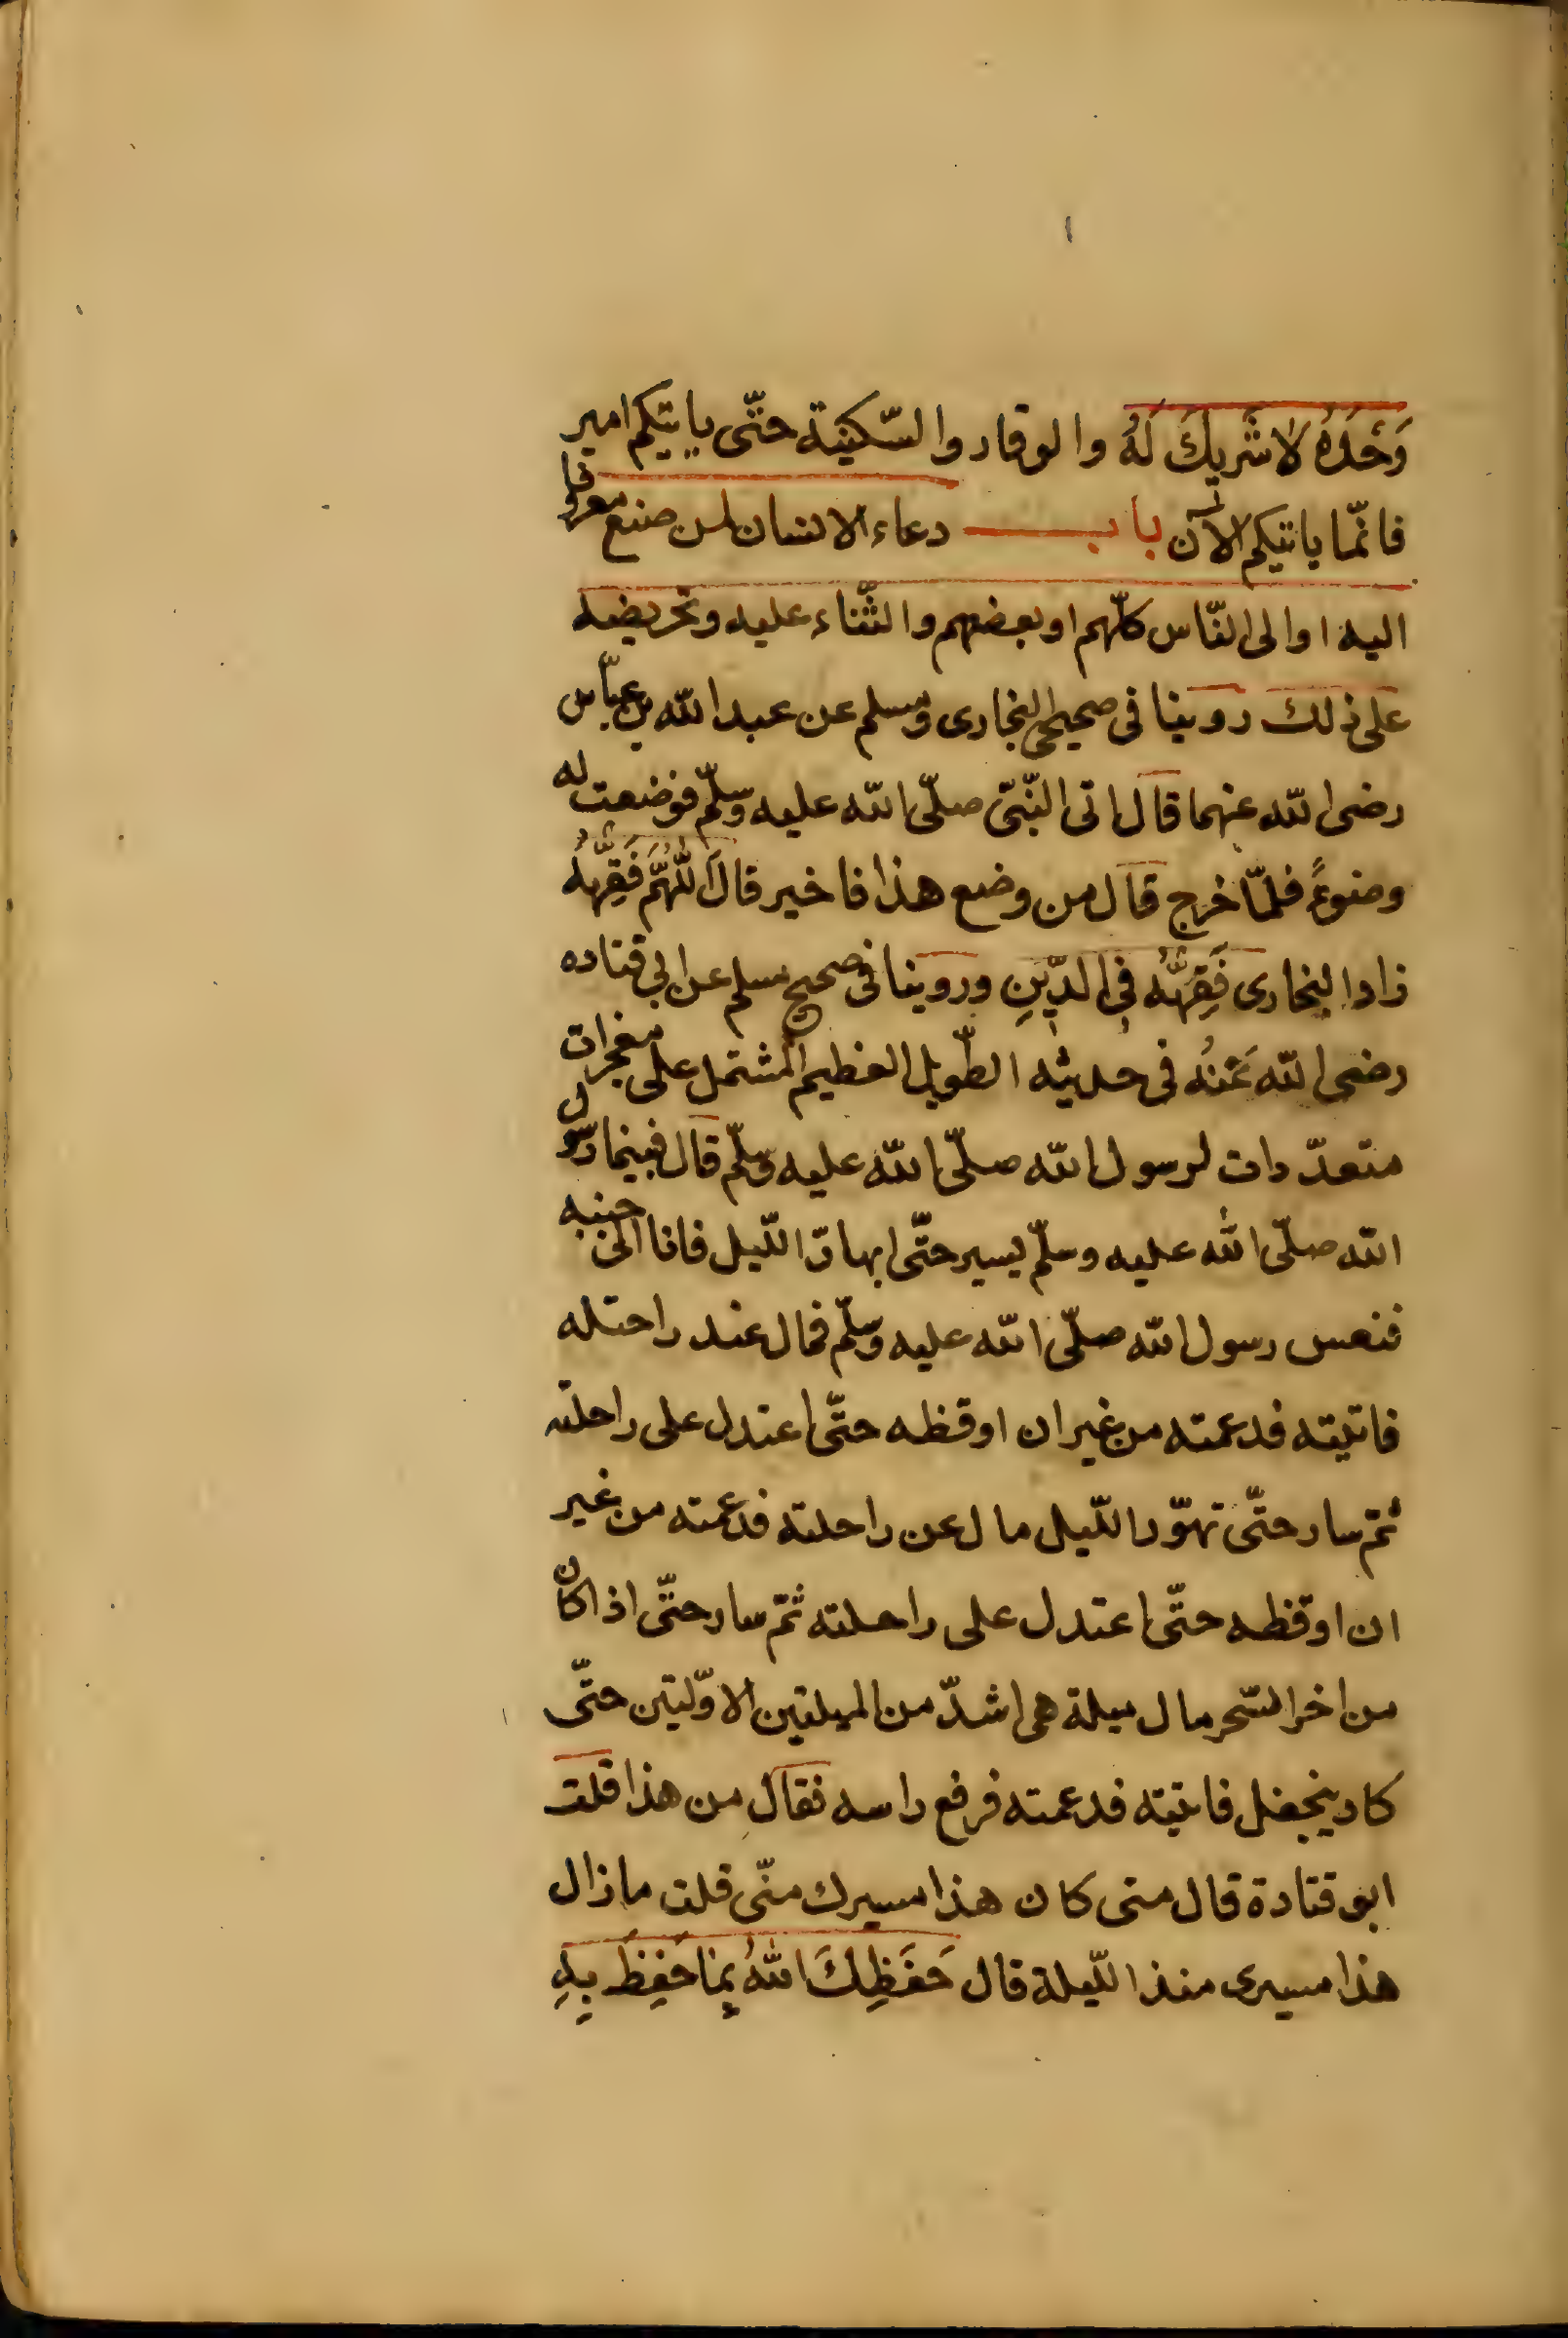 وَحْدَهُ لَا شَرِيكَ لَهُ والوقار والسّكينة حتّى ياتيكم امير
فانّما ياتيكم الآن باب دعاء الانسان لمن صنع معروفا
اليه او الى النّاس كلّهم او بعضهم والثّناء عليه وتحريضه
على ذلك روينا فى صحيحى البخارى ومسلم عن عبد اللّه بن عبّاس
رضى اللّه عنهما قال اتى النّبىّ صلّى اللّه عليه وسلّم فوضعت له
وضوءً فلمّا خرج قال من وضع هذا فاخبر قال اَللّٰهُمَّ فَقِّهْهُ
زاد البخارى فَقِّهْهُ فِى الدِّيْنِ وروينا فى صحيح مسلم عن ابى قتاده
رضى اللّه عَنْهُ فى حديثه الطّويل العظيم المشتمل على معجزات
متعدّدات لرسول اللّه صلّى اللّه عليه وسلّم قال فبينما رسول
اللّه صلّى اللّه عليه وسلّم يسير حتّى ابهارّ اللّيل فانا الى جنبه
فنعس رسول اللّه صلّى اللّه عليه وسلّم فمال عند راحتله
فاتيته فدعمته من غير ان اوقظه حتّى اعتدل على راحلته
ثمّ سار حتّى تهوّر اللّيل مال عن راحلته فدعمته من غير
ان اوقظه حتّى اعتدل على راحلته ثمّ سار حتّى اذا كان
من اخر السّحر مال ميلة هى اشدّ من الميلتين الاوّليتين حتّى
كاد ينجفل فاتيته فدعمته فرفع راسه فقال من هذا قلت
ابو قتادة قال متى كان هذا مسيرك منّى قلت ما زال
هذا مسيرى منذ اللّيلة قال حَفَظِكَ اللّٰهُ بِمَا حَفِظَ بِهِ